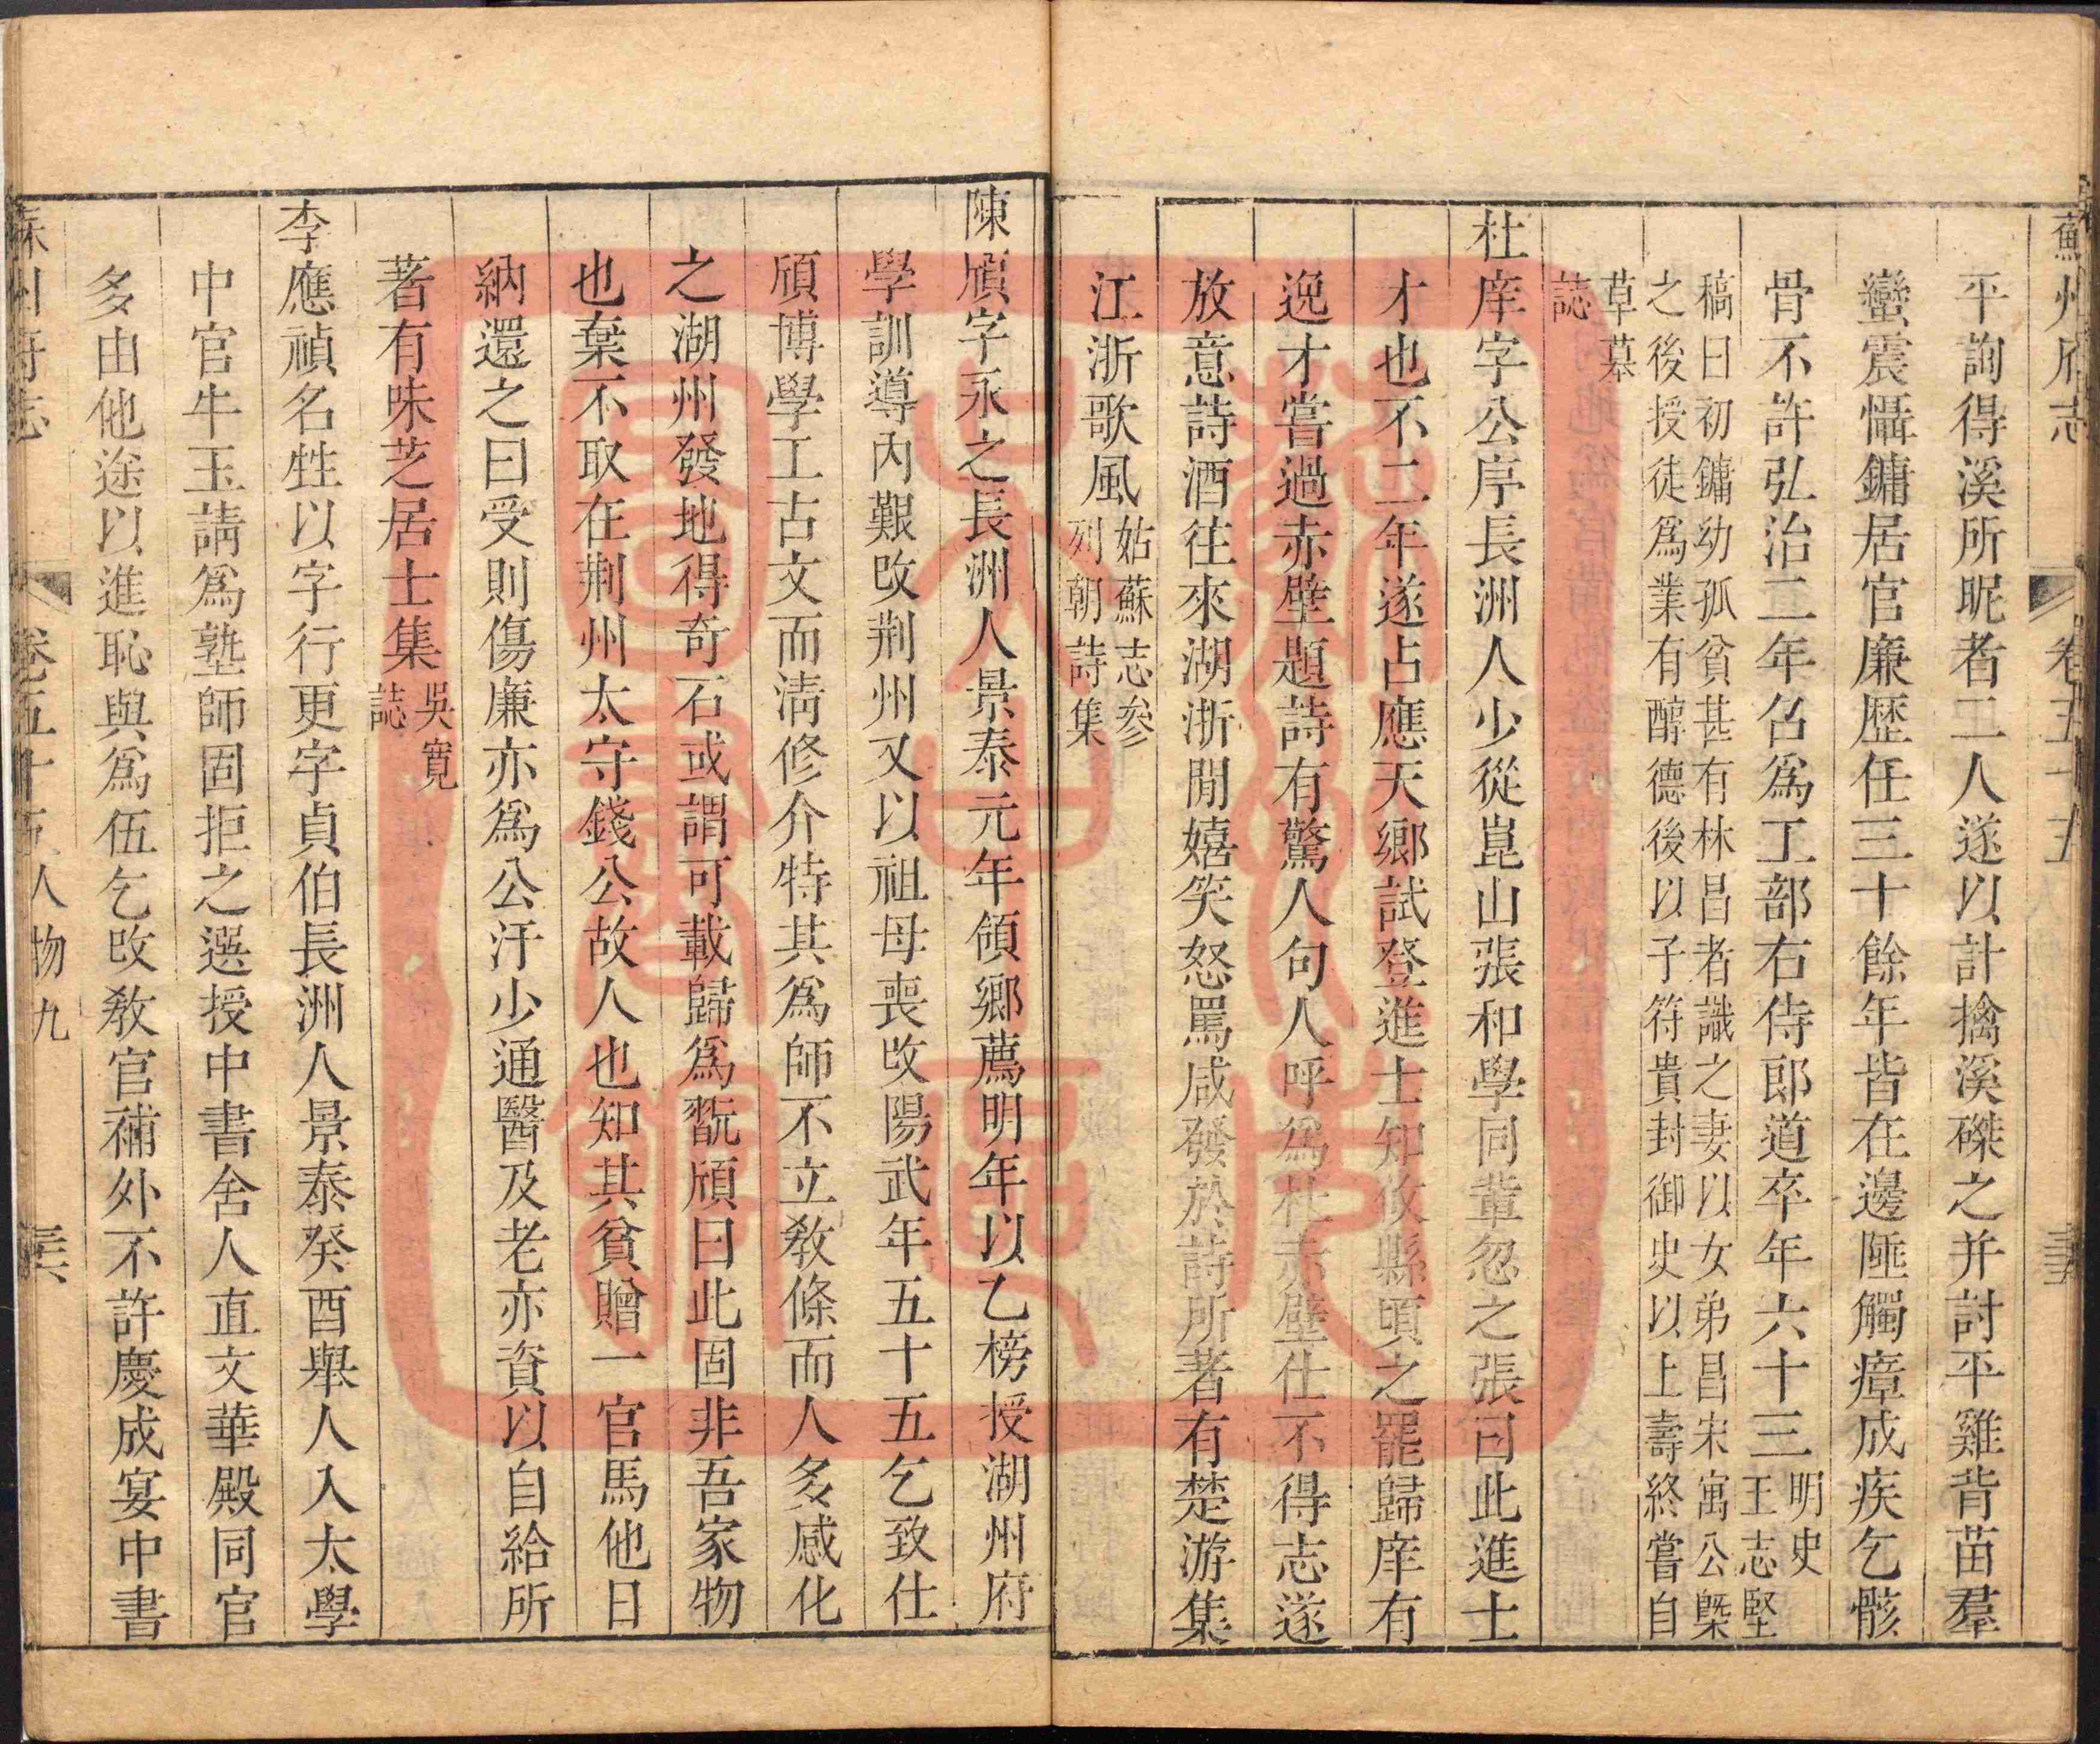 蘇州府志 卷五十五
平詢得溪所昵者二人遂以計擒溪磔之并討平雞背苗羣
蠻震懾鏞居官廉歷任三十餘年皆在邊陲觸瘴成疾乞骸
骨不許弘治二年召爲工部右侍郎道卒年六十三明史
王志堅
稿曰初鏞幼孤貧甚有林昌者識之妻以女弟昌宋寓公槩
之後授徒爲業有醇德後以子符貴封御史以上壽終嘗自
草墓
誌
杜庠字公序長洲人少從崑山張和學同輩忽之張曰此進士
才也不二年遂占應天鄉試登進士知攸縣頃之罷歸庠有
逸才嘗過赤壁題詩有驚人句人呼爲杜赤壁仕不得志遂
放意詩酒往來湖浙閒嬉笑怒罵咸發於詩所著有楚游集
江浙歌風姑蘇志參
列朝詩集
陳頎字永之長洲人景泰元年領鄉薦明年以乙榜授湖州府
學訓導內艱改荆州又以祖母喪改陽武年五十五乞致仕
頎博學工古文而淸修介特其爲師不立敎條而人多感化
之湖州發地得奇石或謂可載歸爲翫頎曰此固非吾家物
也棄不取在荆州太守錢公故人也知其貧贈一官馬他日
納還之曰受則傷廉亦爲公汙少通醫及老亦資以自給所
著有味芝居士集吳寬
誌
李應禎名甡以字行更字貞伯長洲人景泰癸酉舉人入太學
中官牛玉請爲塾師固拒之選授中書舍人直文華殿同官
多由他途以進恥與爲伍乞改敎官補外不許慶成宴中書
蘇州府志 卷五十五人物九